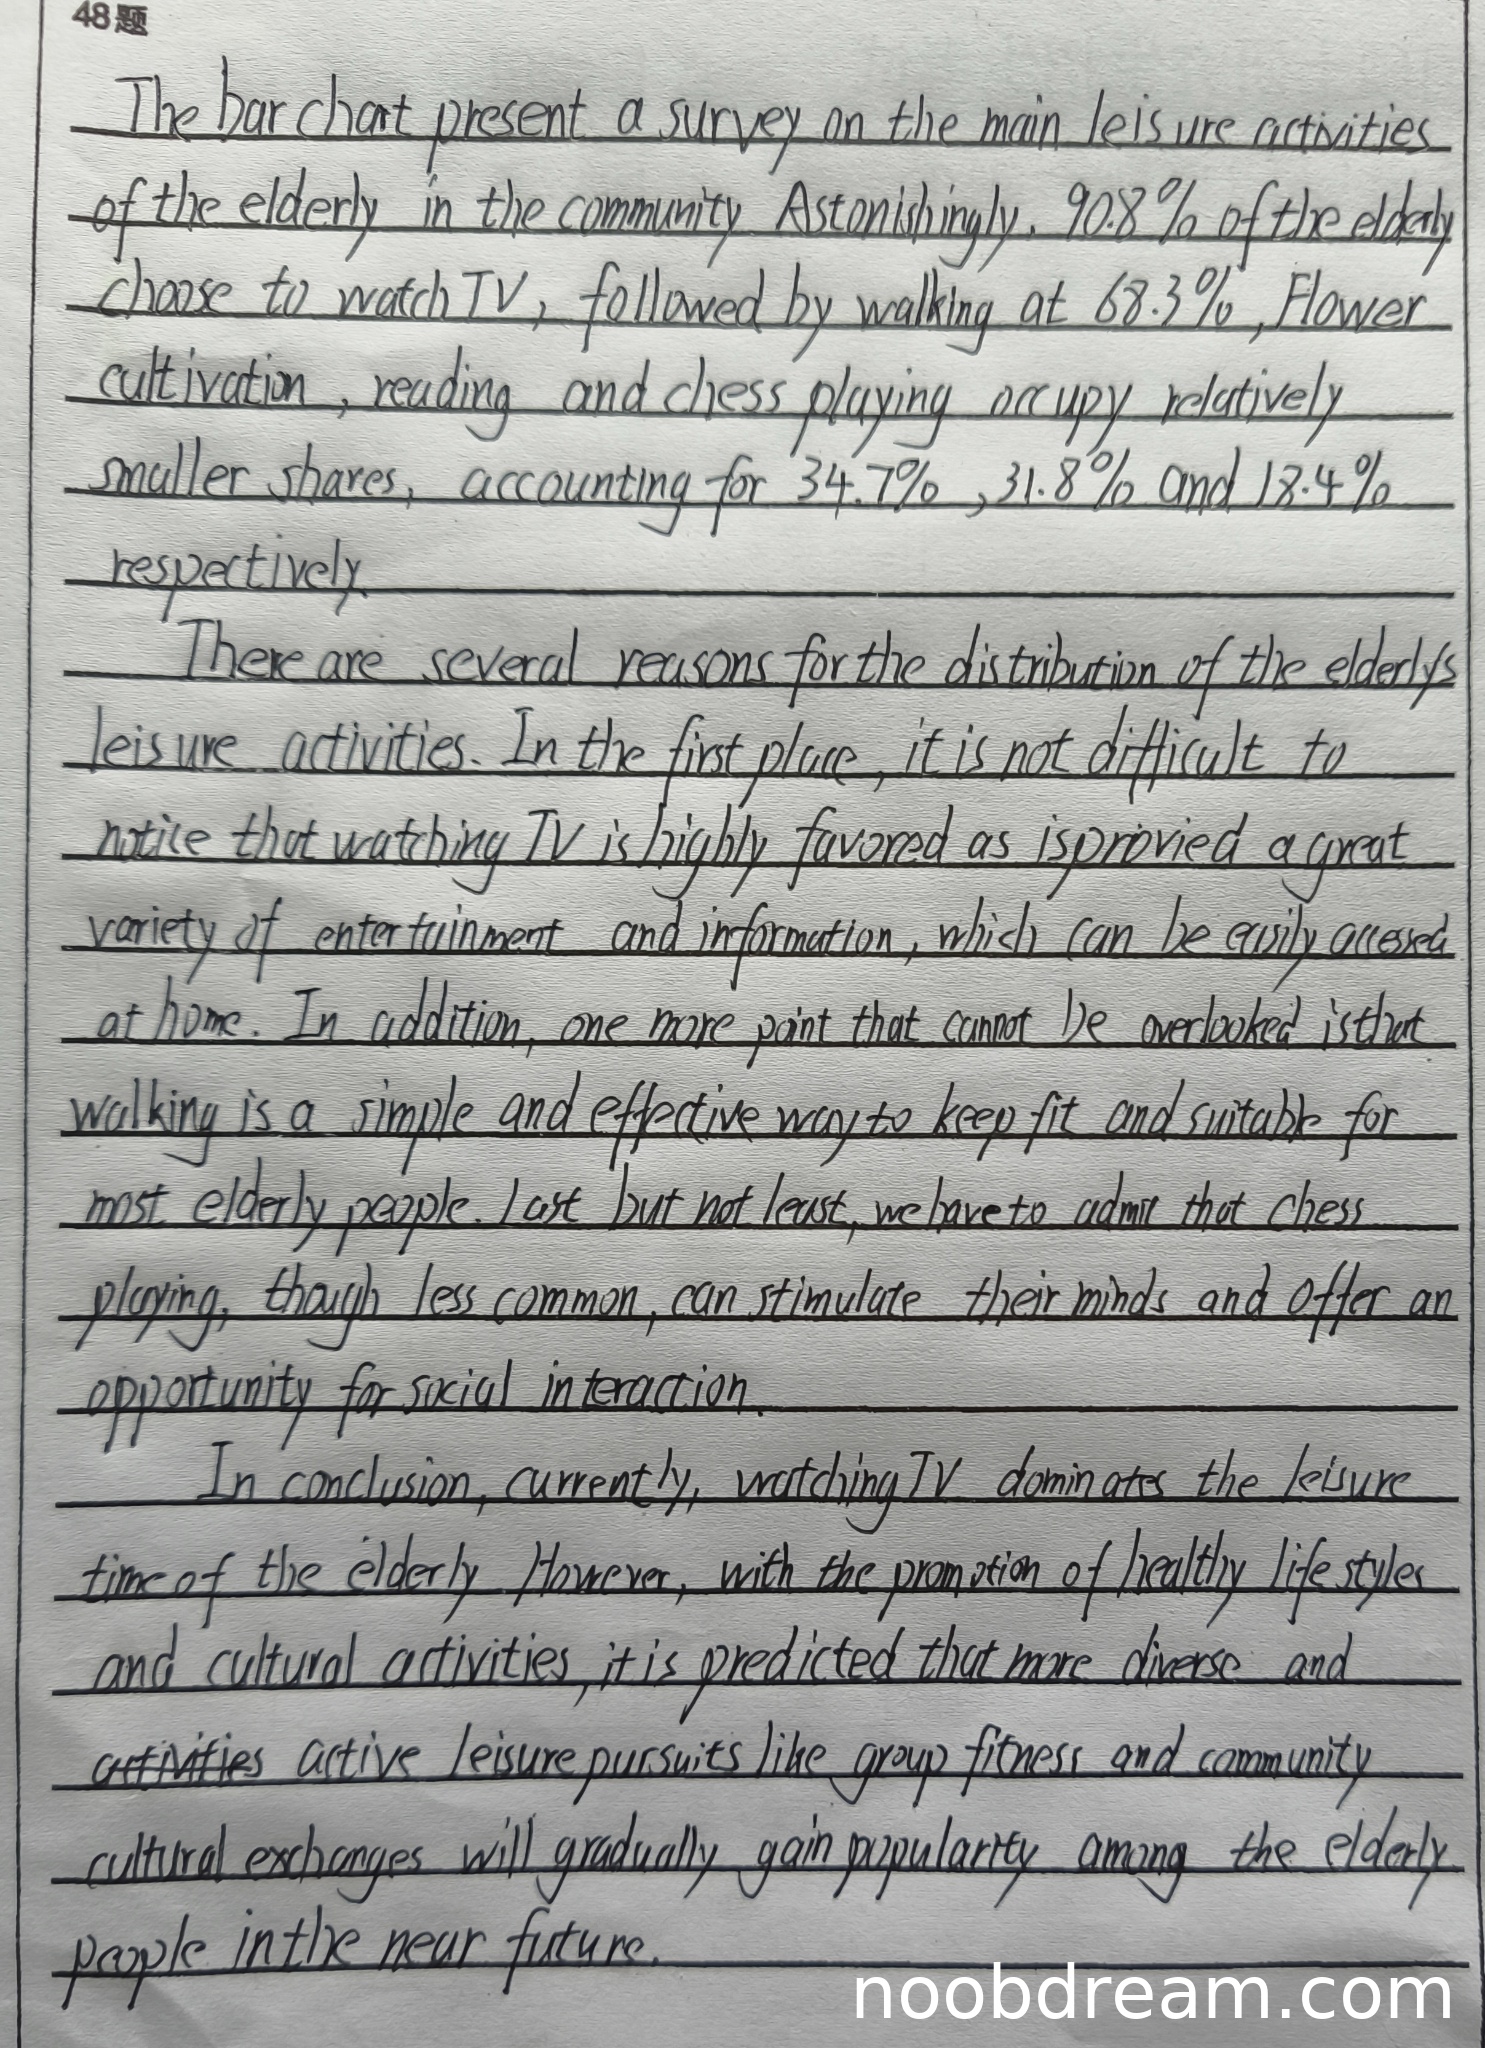 48题
The bar chart present a survey on the main leisure activities
of the elderly in the community. Astonishingly, 90.8% of the elderly
choose to watch TV, followed by walking at 68.3%, Flower
cultivation, reading and chess playing occupy relatively
smaller shares, accounting for 34.7%, 31.8% and 18.4%
respectively.
There are several reasons for the distribution of the elderly's
leisure activities. In the first place, it is not difficult to
notice that watching TV is highly favored as is provied a great
variety of entertainment and information, which can be easily accessed
at home. In addition, one more point that cannot be overlooked is that
walking is a simple and effective way to keep fit and suitable for
most elderly people. Last but not least, we have to admit that chess
playing, though less common, can stimulate their minds and offer an
opportunity for social interaction.
In conclusion, currently, watching TV dominates the leisure
time of the elderly. However, with the promotion of healthy lifestyles
and cultural activities, it is predicted that more diverse and
activities active leisure pursuits like group fitness and community
cultural exchanges will gradually gain popularity among the elderly
people in the near future.
noobdream.com